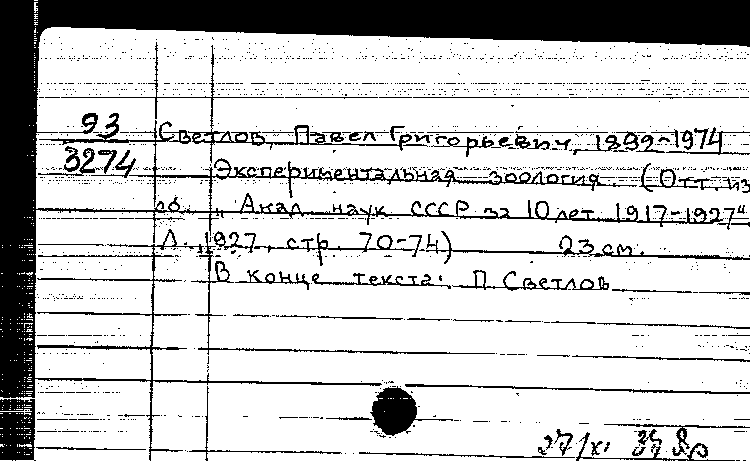 93
3274
Светлов, Павел Григорьевич, 1892-1974
Экспериментальная зоология. (Отт. из
сб. „Акад. наук СССР за 10 лет. 1917-1927“.
Л., 1927, стр. 70-74) 23 см.
В конце текста: П. Светлов
27/XI